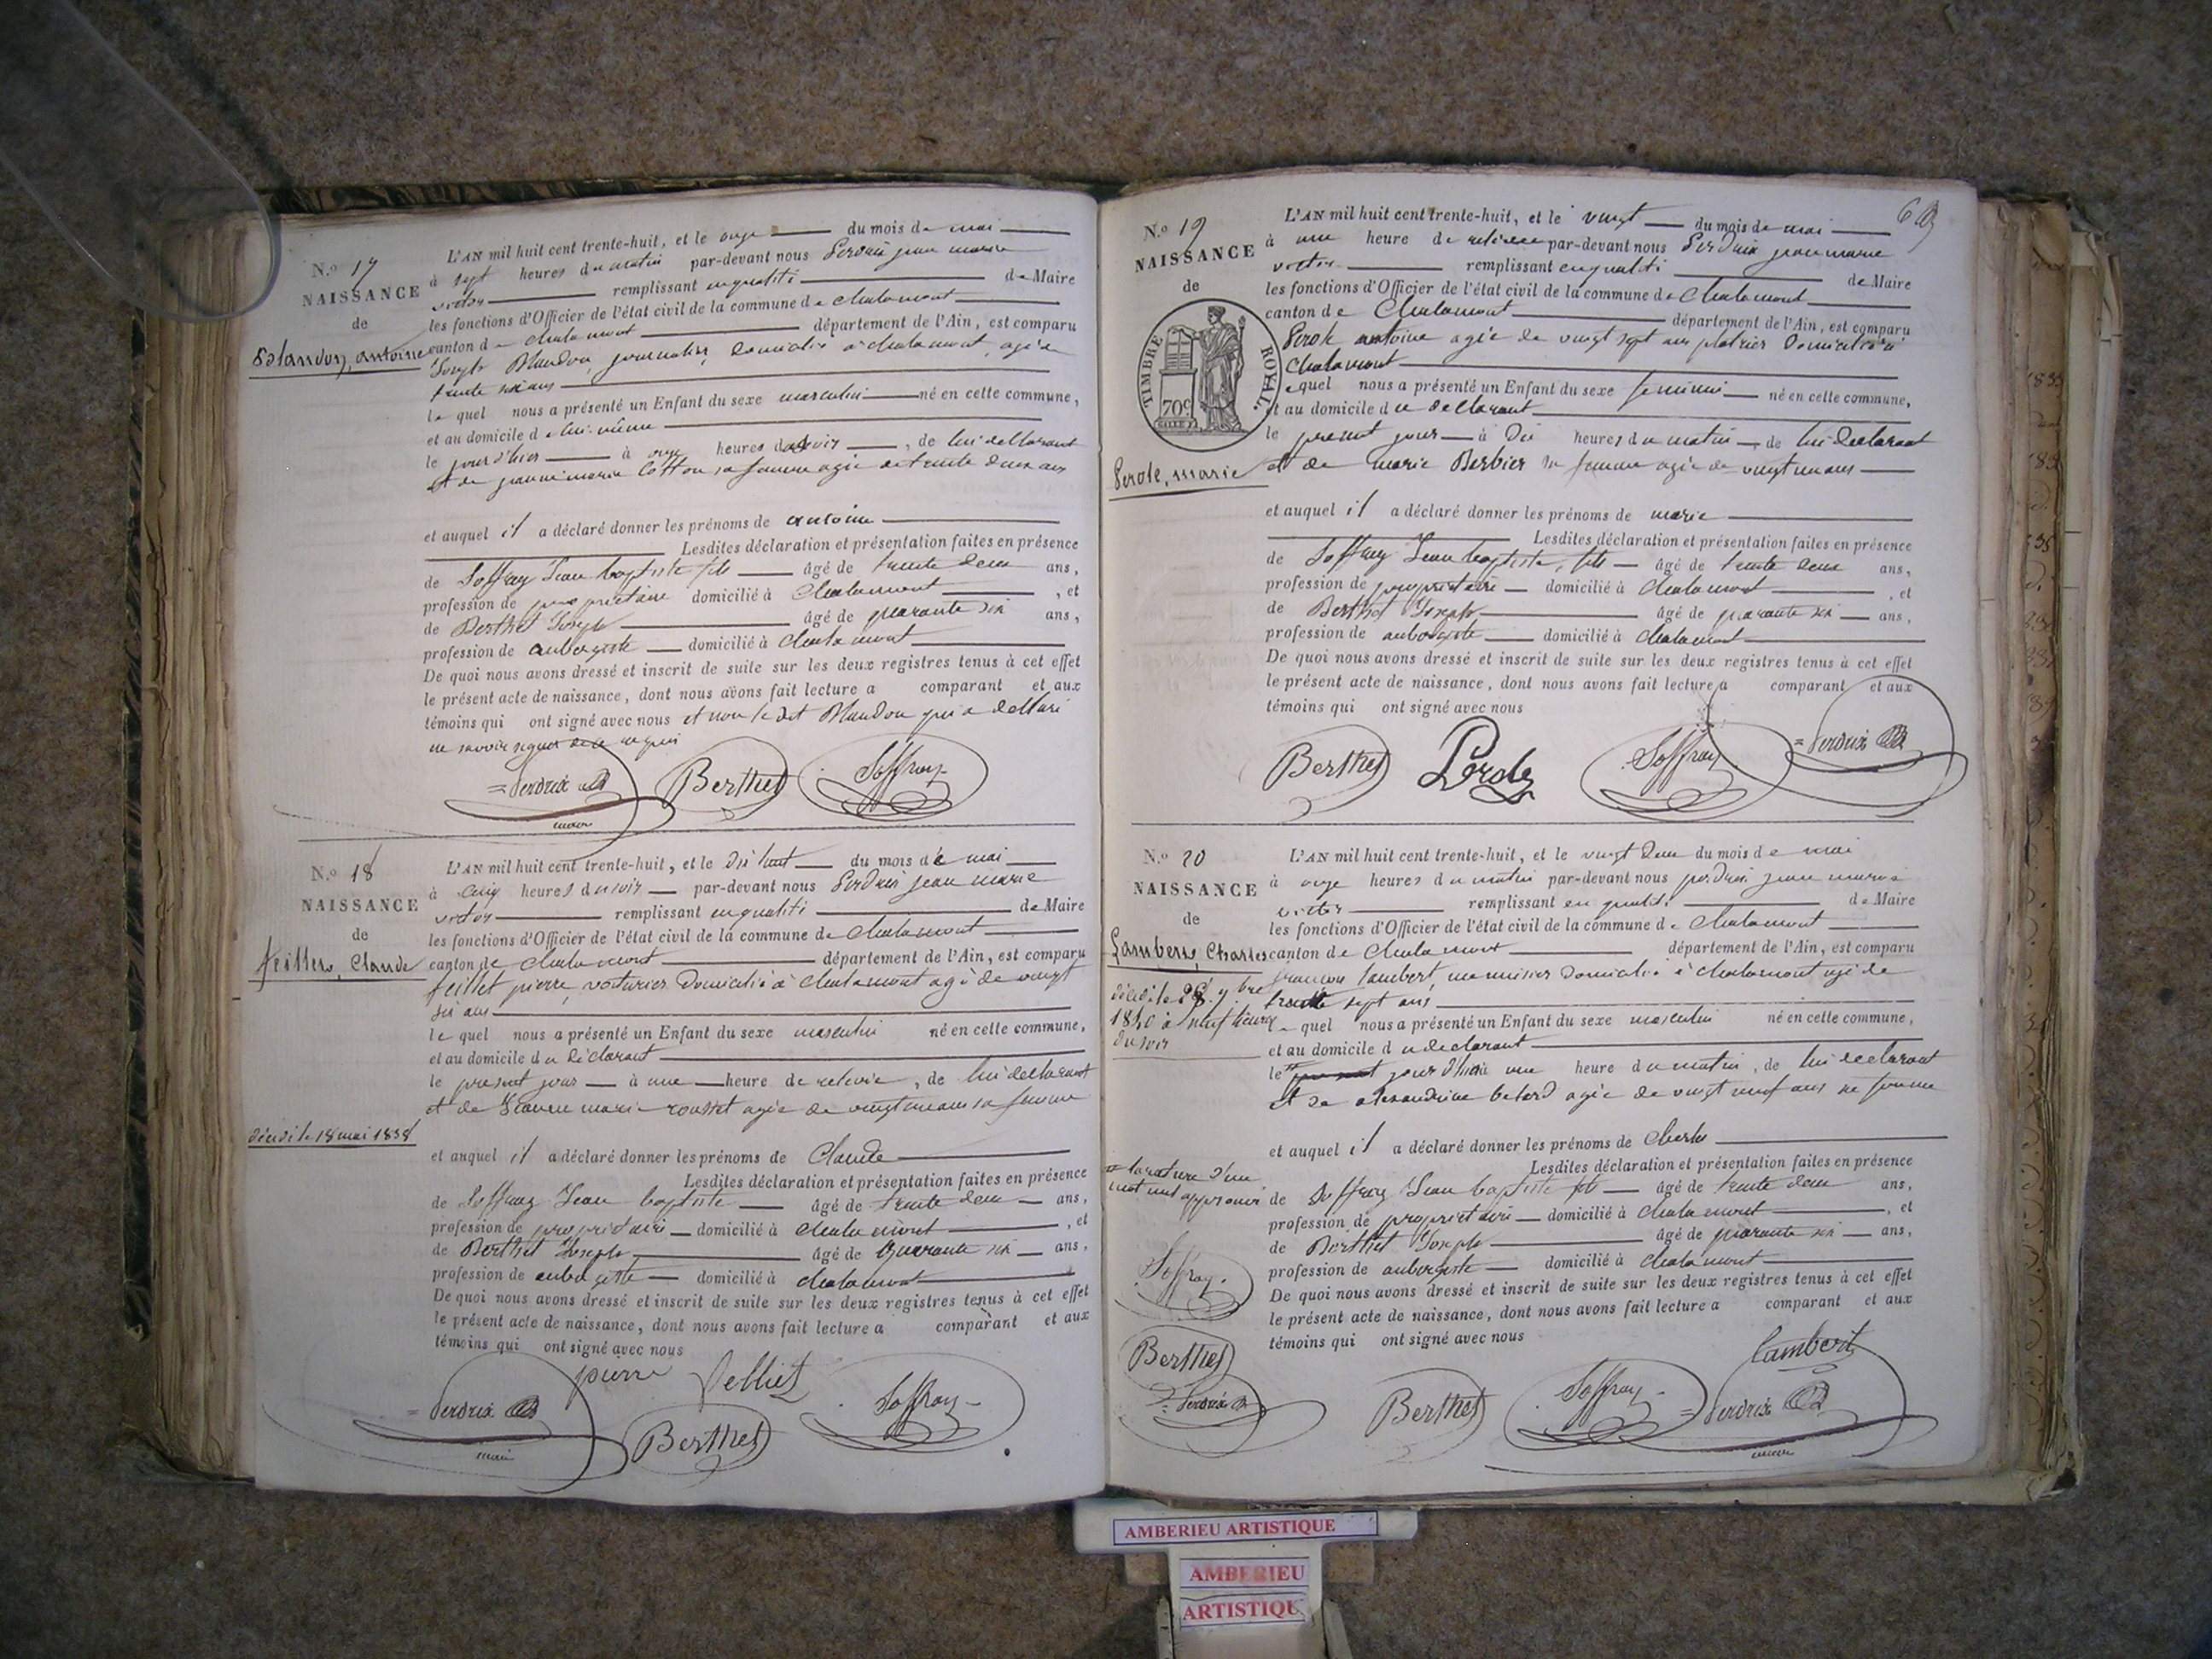 N.o 17
NAISSANCE
de
Blandon, antoine
L'AN mil huit cent trente-huit, et le onze du mois de mai
à sept heures du matin par-devant nous Perdrix jean marie
victor remplissant en qualité de Maire
les fonctions d'Officier de l'état civil de la commune de Chalamont
canton de Chalamont département de l'Ain, est comparu
Joseph Blandon, journalier, domicilié à chalamont, agé de
trente six ans
le quel nous a présenté un Enfant du sexe masculin né en cette commune,
et au domicile de lui-même
le jour d'hier à onze heures du soir, de lui déclarant
et de jeanne marie Cotton sa femme agée de trente deux ans
et auquel il a déclaré donner les prénoms de antoine
Lesdites déclaration et présentation faites en présence
de Soffray Jean baptiste fils âgé de trente deux ans,
profession de propriétaire domicilié à Chalamont, et
de Berthet Joseph âgé de quarante six ans,
profession de aubergiste domicilié à Chalamont
De quoi nous avons dressé et inscrit de suite sur les deux registres tenus à cet effet
le présent acte de naissance, dont nous avons fait lecture a comparant et aux
témoins qui ont signé avec nous et non le dit Blandon qui a déclaré
ne savoir signer de ce requis
Perdrix Berthet Soffray
maire
N.o 18
NAISSANCE
de
Claude
décédé le 18 mai 1838
L'AN mil huit cent trente-huit, et le dix huit du mois de mai
à cinq heures du soir par-devant nous Perdrix jean marie
victor remplissant en qualité de Maire
les fonctions d'Officier de l'état civil de la commune de Chalamont
canton de Chalamont département de l'Ain, est comparu
pierre, voiturier domicilié à chalamont agé de vingt
six ans
le quel nous a présenté un Enfant du sexe masculin né en cette commune,
et au domicile du déclarant
le présent jour à une heure de relevée, de lui déclarant
et de Jeanne marie rousset agée de vingt un ans sa femme
et auquel il a déclaré donner les prénoms de Claude
Lesdites déclaration et présentation faites en présence
de Soffray Jean baptiste âgé de trente deux ans,
profession de propriétaire domicilié à Chalamont, et
de Berthet Joseph âgé de quarante six ans,
profession de aubergiste domicilié à chalamont
De quoi nous avons dressé et inscrit de suite sur les deux registres tenus à cet effet
le présent acte de naissance, dont nous avons fait lecture a comparant et aux
témoins qui ont signé avec nous
pierre
Perdrix Berthet Soffray
maire
N.o 19
NAISSANCE
de
TIMBRE ROYAL
70c
Perole, marie
L'AN mil huit cent trente-huit, et le vingt du mois de mai
à une heure de relevée par-devant nous Perdrix jean marie
victor remplissant en qualité de Maire
les fonctions d'Officier de l'état civil de la commune de Chalamont
canton de Chalamont département de l'Ain, est comparu
antoine agé de vingt sept ans platrier domicilié à
Chalamont
equel nous a présenté un Enfant du sexe féminin né en cette commune,
et au domicile du déclarant
le présent jour à dix heures du matin, de lui déclarant
et de marie Berbier sa femme agée de vingt un ans
et auquel il a déclaré donner les prénoms de marie
Lesdites déclaration et présentation faites en présence
de Soffray Jean baptiste, fils âgé de trente deux ans,
profession de propriétaire domicilié à Chalamont, et
de Berthet Joseph âgé de quarante six ans,
profession de aubergiste domicilié à chalamont
De quoi nous avons dressé et inscrit de suite sur les deux registres tenus à cet effet
le présent acte de naissance, dont nous avons fait lecture a comparant et aux
témoins qui ont signé avec nous
Berthet Soffray Perdrix
N.o 20
NAISSANCE
de
Lambert, Charles
décédé le 28 9bre
1840 à neuf heures
du soir
L'AN mil huit cent trente-huit, et le vingt deux du mois de mai
à onze heures du matin par-devant nous perdrix jean marie
victor remplissant en qualité de Maire
les fonctions d'Officier de l'état civil de la commune de Chalamont
canton de Chalamont département de l'Ain, est comparu
françois Lambert, menuisier domicilié à chalamont agé de
trente sept ans
le quel nous a présenté un Enfant du sexe masculin né en cette commune,
et au domicile du déclarant
le jour d'hier à une heure du matin, de lui déclarant
et de alexandrine belard agée de vingt neuf ans sa femme
et auquel il a déclaré donner les prénoms de Charles
Lesdites déclaration et présentation faites en présence
de Soffray Jean baptiste fils âgé de trente deux ans,
profession de propriétaire domicilié à Chalamont, et
de Berthet Joseph âgé de quarante six ans,
profession de aubergiste domicilié à chalamont
De quoi nous avons dressé et inscrit de suite sur les deux registres tenus à cet effet
le présent acte de naissance, dont nous avons fait lecture a comparant et aux
témoins qui ont signé avec nous
la rature d'un
mot nul approuvé
Soffray
Berthet
Perdrix
Lambert
Berthet Soffray Perdrix
maire
AMBERIEU ARTISTIQUE
AMBERIEU
ARTISTIQUE